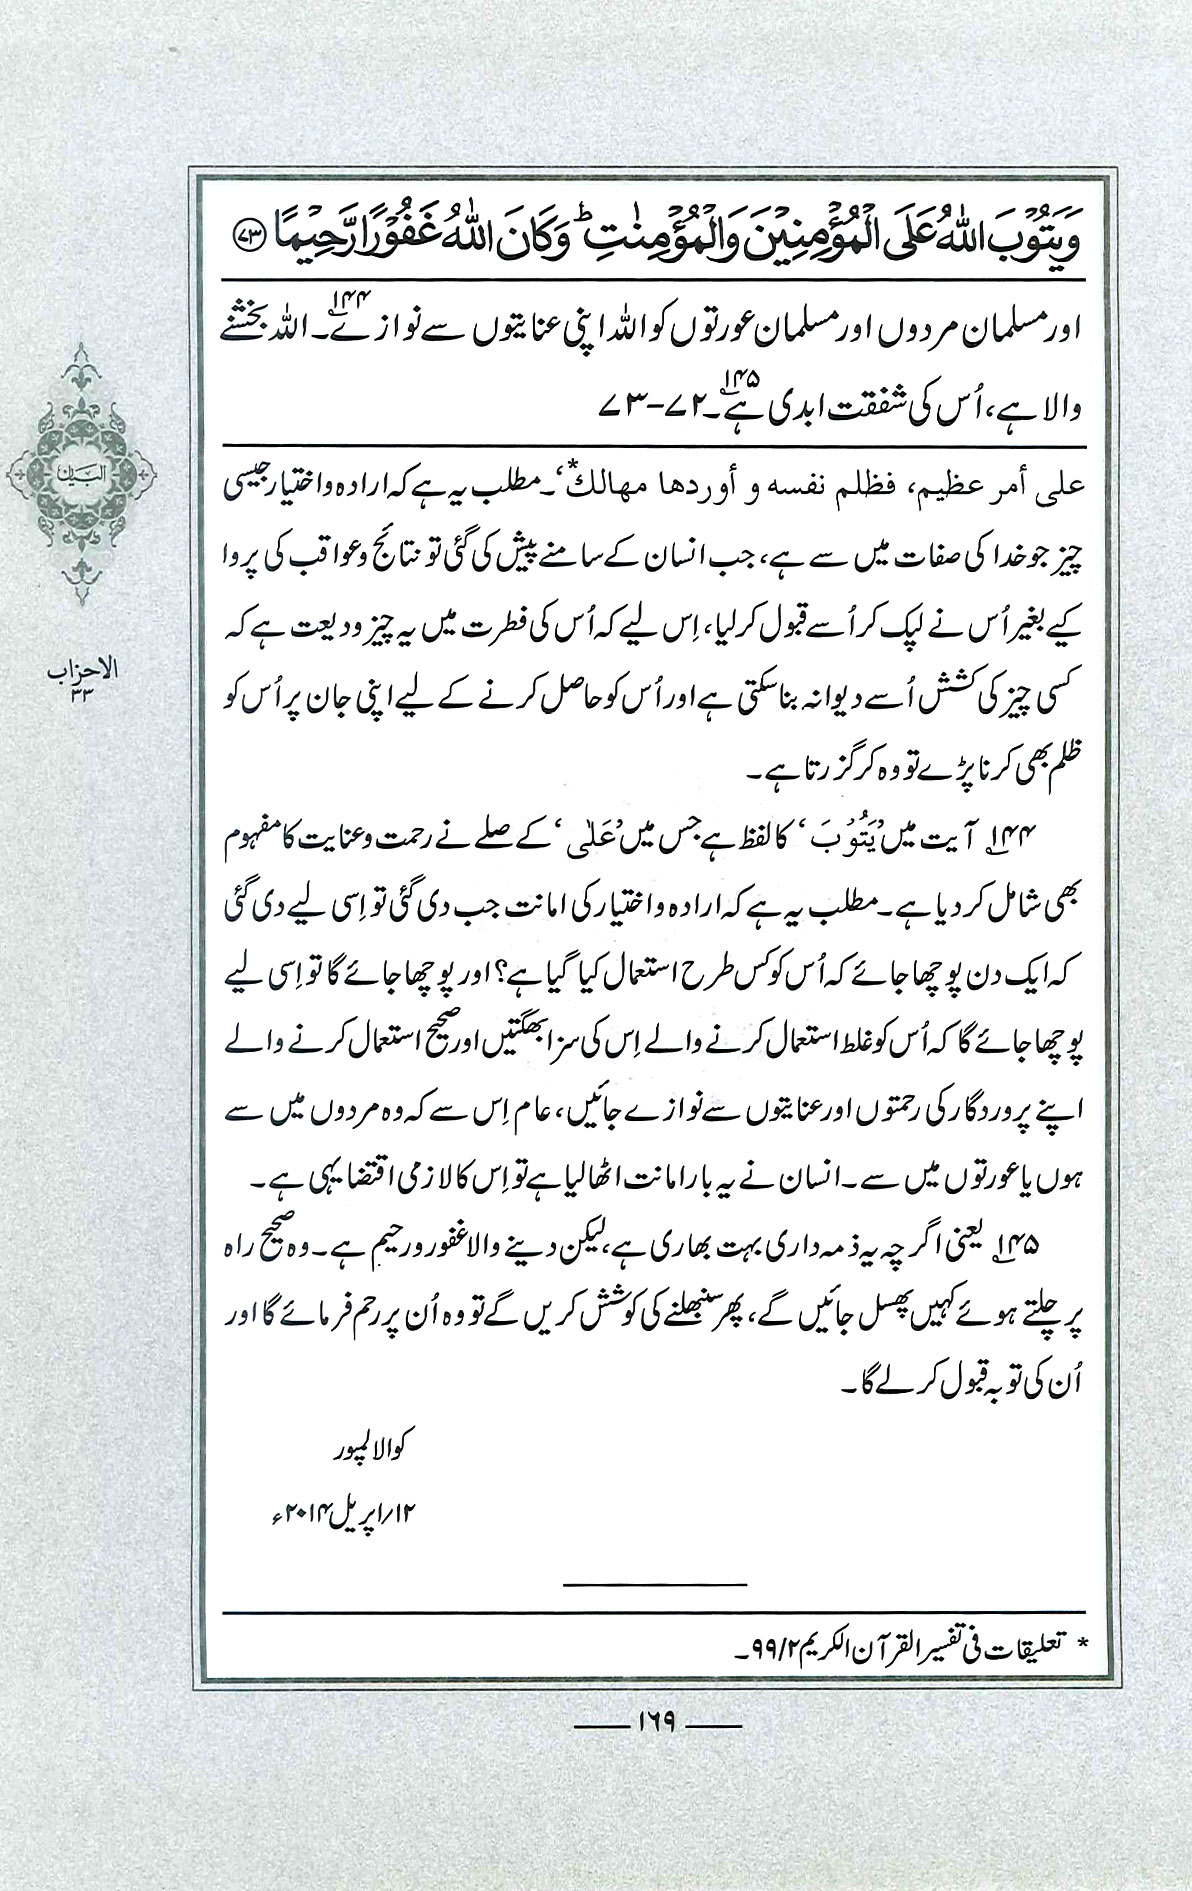 وَيَتُوْبَ اللّٰهُ عَلَى الْمُؤْمِنِيْنَ وَالْمُؤْمِنٰتِ ؕ وَكَانَ اللّٰهُ غَفُوْرًا رَّحِيْمًا ﴿۷۳﴾
اور مسلمان مردوں اور مسلمان عورتوں کو اللہ اپنی عنایتوں سے نوازے۔۱۴۴ اللہ بخشنے
والا ہے، اُس کی شفقت ابدی ہے۔۱۴۵ ۷۲-۷۳
علی أمر عظیم، فظلم نفسه و أوردها مهالك*‘۔ مطلب یہ ہے کہ ارادہ و اختیار جیسی
چیز جو خدا کی صفات میں سے ہے، جب انسان کے سامنے پیش کی گئی تو نتائج و عواقب کی پروا
کیے بغیر اُس نے لپک کر اُسے قبول کر لیا، اِس لیے کہ اُس کی فطرت میں یہ چیز ودیعت ہے کہ
کسی چیز کی کشش اُسے دیوانہ بنا سکتی ہے اور اُس کو حاصل کرنے کے لیے اپنی جان پر اُس کو
ظلم بھی کرنا پڑے تو وہ کر گزرتا ہے۔
۱۴۴ آیت میں ’یَتُوْبَ‘ کا لفظ ہے جس میں ’عَلٰی‘ کے صلے نے رحمت و عنایت کا مفہوم
بھی شامل کر دیا ہے۔ مطلب یہ ہے کہ ارادہ و اختیار کی امانت جب دی گئی تو اِسی لیے دی گئی
کہ ایک دن پوچھا جائے کہ اُس کو کس طرح استعمال کیا گیا ہے؟ اور پوچھا جائے گا تو اِسی لیے
پوچھا جائے گا کہ اُس کو غلط استعمال کرنے والے اِس کی سزا بھگتیں اور صحیح استعمال کرنے والے
اپنے پروردگار کی رحمتوں اور عنایتوں سے نوازے جائیں، عام اِس سے کہ وہ مردوں میں سے
ہوں یا عورتوں میں سے۔ انسان نے یہ بار امانت اٹھا لیا ہے تو اِس کا لازمی اقتضا یہی ہے۔
۱۴۵ یعنی اگرچہ یہ ذمہ داری بہت بھاری ہے، لیکن دینے والا غفور و رحیم ہے۔ وہ صحیح راہ
پر چلتے ہوئے کہیں پھسل جائیں گے، پھر سنبھلنے کی کوشش کریں گے تو وہ اُن پر رحم فرمائے گا اور
اُن کی توبہ قبول کر لے گا۔
کوالالمپور
۱۲/اپریل ۲۰۱۴ء
* تعلیقات فی تفسیر القرآن الکریم ۲/۹۹۔
۱۶۹
البیان
الاحزاب
۳۳